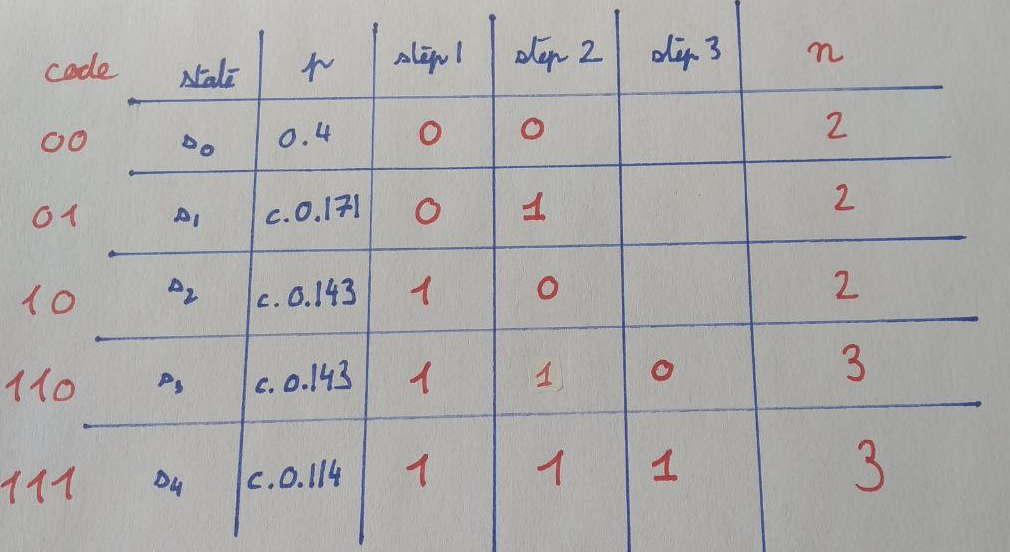 code state p step 1 step 2 step 3 n
00 s0 0.4 0 0 2
01 s1 c. 0.171 0 1 2
10 s2 c. 0.143 1 0 2
110 s3 c. 0.143 1 1 0 3
111 s4 c. 0.114 1 1 1 3